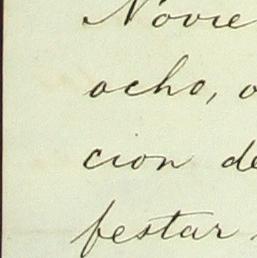 Novie
ocho, o
cion de
festar